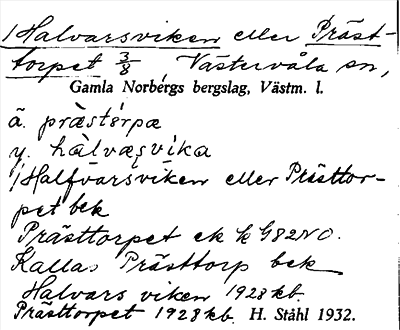 /Halvarsviken eller Präst-
torpet 3/8 Västervåla sn,
Gamla Norbergs bergslag, Västm. l.
ä. præstórpæ
y. hàlvæsvika
/Halfvarsviken eller Prästtor-
pet bek
Prästtorpet ek k G82NO.
Kallas Prästtorp bek
Halvars viken 1928 kb.
Prästtorpet 1928 kb. H. Ståhl 1932.